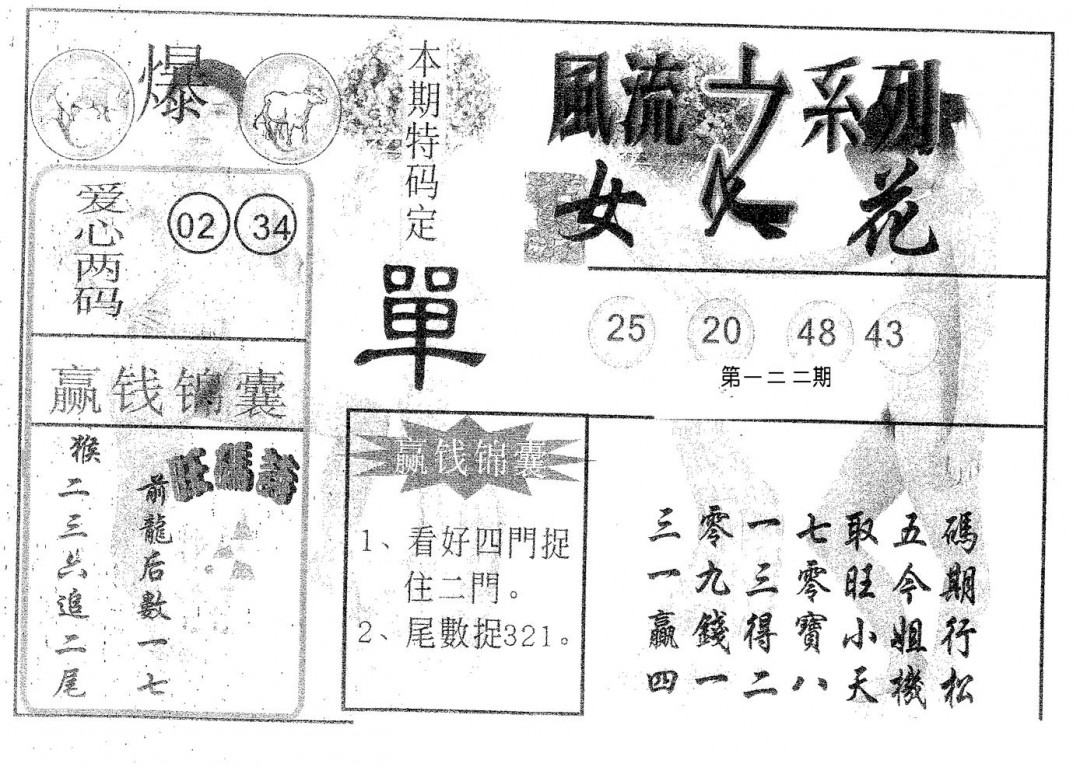 爆
爱心两码
02 34
赢钱锦囊
猴二三六追二尾
前龍后數一七
旺碼詩
本期特码定
單
風流之系列
女人花
25 20 48 43
第一二二期
赢钱锦囊
1、看好四門捉
住二門。
2、尾數捉321。
三零一七取五碼
一九三零旺今期
贏錢得寶小姐行
四一二八天機松